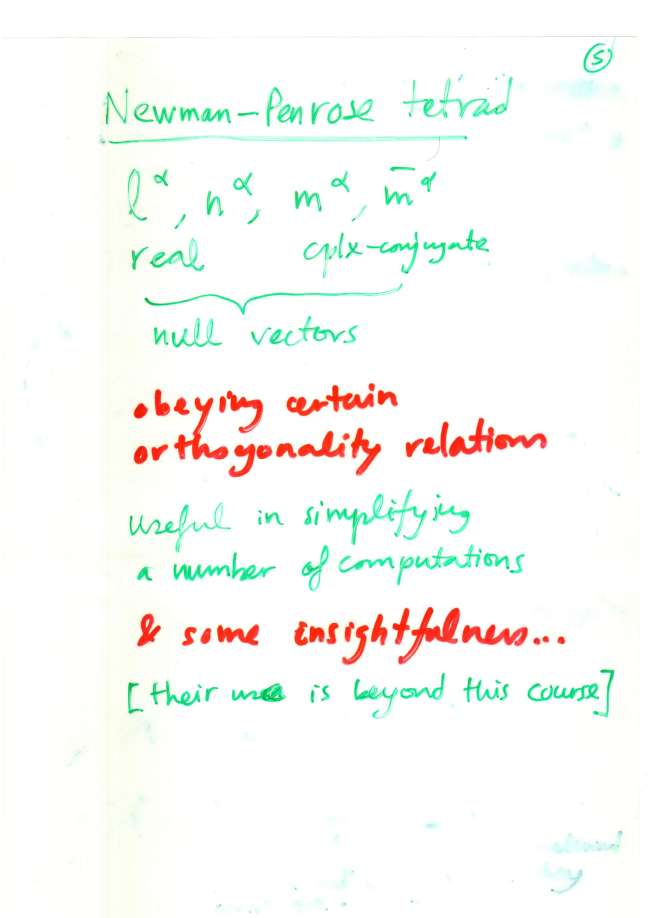 ⑤
Newman-Penrose tetrad
l^α, n^α, m^α, m̄^α
real cplx-conjugate
null vectors
obeying certain
orthogonality relations
useful in simplifying
a number of computations
& some insightfulness...
[their use is beyond this course]